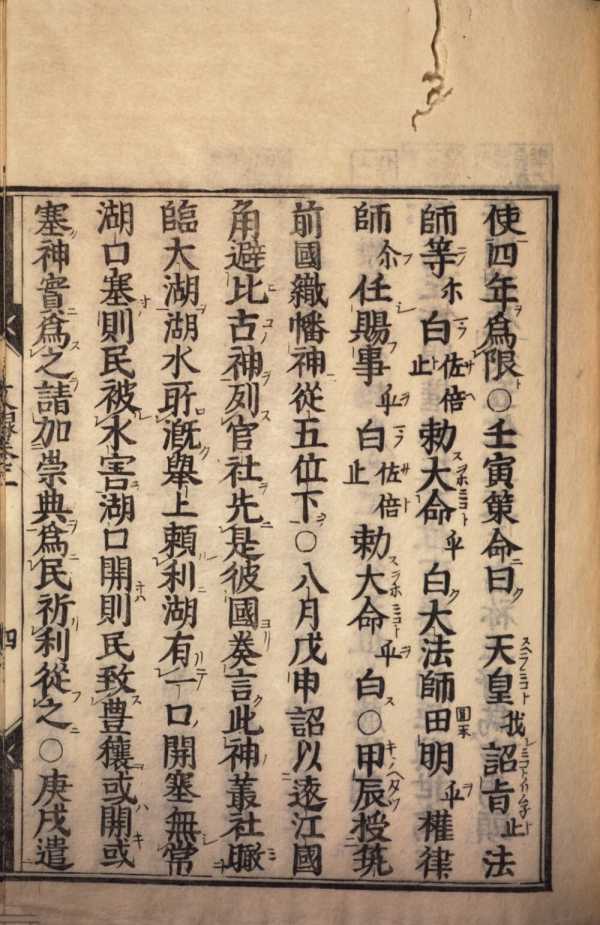 使四年爲限○壬寅策命曰 天皇我詔旨止法
師等尒白佐倍止勅大命乎白大法師田圓本明乎權律
師尒任賜事乎白佐倍止勅大命乎白○甲辰授筑
前國織幡神從五位下○八月戊申詔以遠江國
角避比古神列官社先是彼國奏言此神叢社瞰
臨大湖湖水所漑擧上賴利湖有一口開塞無常
湖口塞則民被水害湖口開則民致豊穰或開或
塞神實爲之請加崇典爲民祈利從之○庚戌遣
四